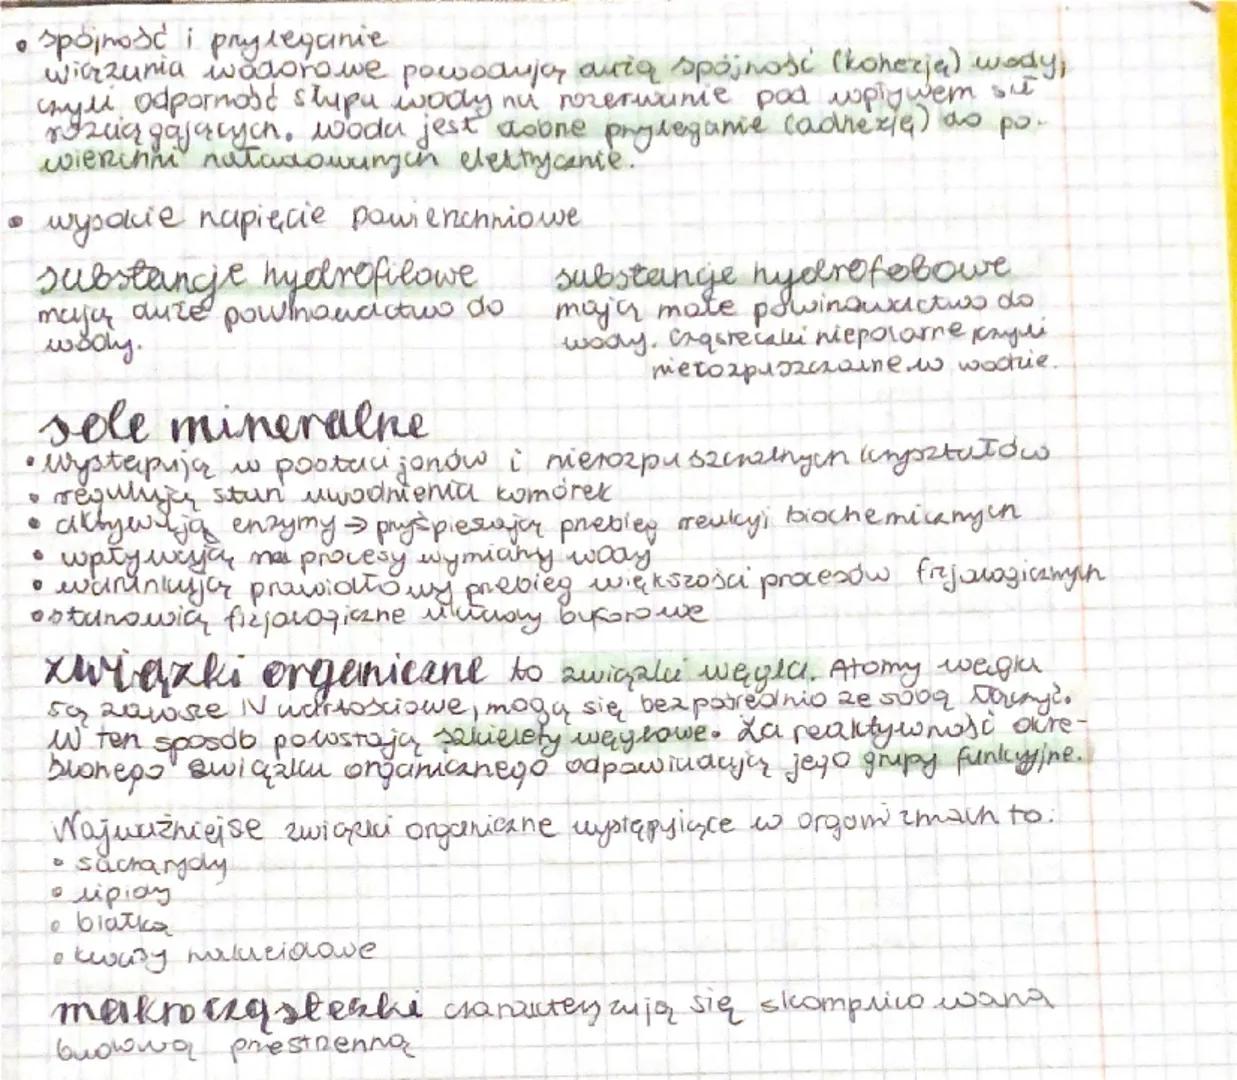 • spójność i przyleganie
wiązania wodorowe powodują dużą spójność (kohezję) wody,
czyli odporność słupa wody na rozerwanie pod wpływem sił
rozciągających. woda jest dobne przyleganie (adhezję) do po-
wierzchni naładowanych elektrycznie.
• wysokie napięcie powierzchniowe
substancje hydrofilowe
mają duże powinowactwo do
wody.
substancje hydrofobowe
mają małe powinowactwo do
wody. Cząsteczki niepolarne czyli
nierozpuszczalne w wodzie.
sole mineralne
• Występują w postaci jonów i nierozpuszczalnych kryształów
• regulują stan uwodnienia komórek
• aktywują enzymy → pryśpieszają przebieg reakcyi biochemicznych
• wpływają na procesy wymiany wody
• warunkują prawidłowy przebieg większości procesów fizjologicznych
• stanowią fizjologiczne układy buforowe
związki organiczne to związki węgla. Atomy węgla
są zawsze IV wartościowe, mogą się bezpośrednio ze sobą łączyć.
W ten sposób powstają szkielety węglowe. Za reaktywność okre-
ślonego związku organicznego odpowiadają jego grupy funkcyjne.
Najważniejsze związki organiczne występujące w organizmach to:
• sacharydy
• lipidy
• białka
• kwasy nukleidowe
makrocząsteczki charakteryzują się skomplikowaną
budową przestrzenną